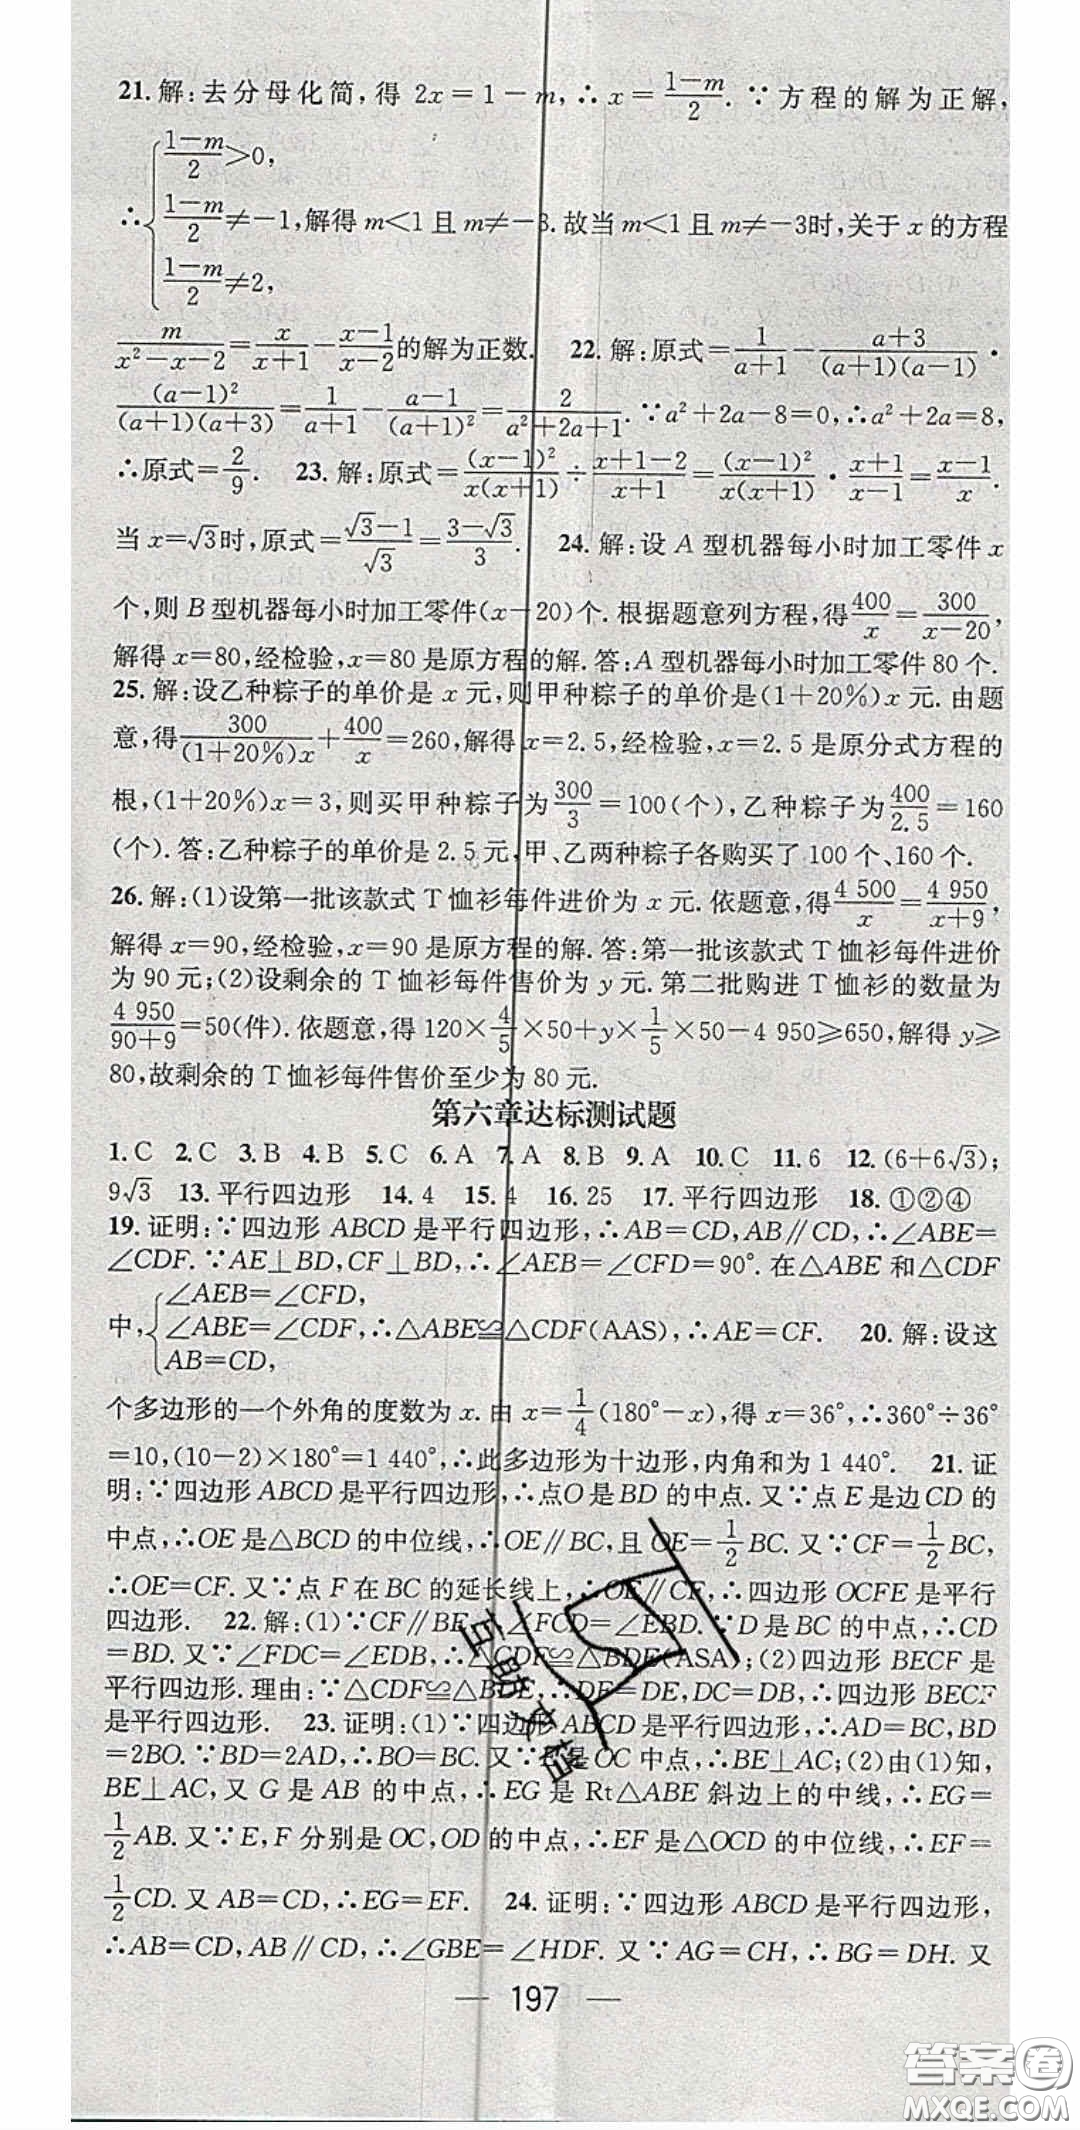 21.解:去分母化简,得 2x=1-m,∴x=\frac{1-m}{2}.∵方程的解为正解,
∴{\frac{1-m}{2}>0,
\frac{1-m}{2}≠-1,解得m<1且m≠-3.故当m<1且m≠-3时,关于x的方程
\frac{1-m}{2}≠2,
\frac{m}{x²-x-2}=\frac{x}{x+1}-\frac{x-1}{x-2}的解为正数. 22.解:原式=\frac{1}{a+1}-\frac{a+3}{(a+1)(a-1)}·
\frac{(a-1)²}{(a+1)(a+3)}=\frac{1}{a+1}-\frac{a-1}{(a+1)²}=\frac{2}{a²+2a+1}.∵a²+2a-8=0,∴a²+2a=8,
∴原式=\frac{2}{9}. 23.解:原式=\frac{(x-1)²}{x(x+1)}÷\frac{x+1-2}{x+1}=\frac{(x-1)²}{x(x+1)}·\frac{x+1}{x-1}=\frac{x-1}{x}.
当x=√3时,原式=\frac{√3-1}{√3}=\frac{3-√3}{3}. 24.解:设A型机器每小时加工零件x
个,则B型机器每小时加工零件(x-20)个.根据题意列方程,得\frac{400}{x}=\frac{300}{x-20},
解得x=80,经检验,x=80是原方程的解.答:A型机器每小时加工零件80个.
25.解:设乙种粽子的单价是x元,则甲种粽子的单价是(1+20%)x元.由题
意,得\frac{300}{(1+20%)x}+\frac{400}{x}=260,解得x=2.5,经检验,x=2.5是原分式方程的
根,(1+20%)x=3,则买甲种粽子为\frac{300}{3}=100(个),乙种粽子为\frac{400}{2.5}=160
(个).答:乙种粽子的单价是2.5元,甲、乙两种粽子各购买了100个、160个.
26.解:(1)设第一批该款式T恤衫每件进价为x元.依题意,得\frac{4 500}{x}=\frac{4 950}{x+9},
解得x=90,经检验,x=90是原方程的解.答:第一批该款式T恤衫每件进价
为90元;(2)设剩余的T恤衫每件售价为y元.第二批购进T恤衫的数量为
\frac{4 950}{90+9}=50(件).依题意,得120×\frac{4}{5}×50+y×\frac{1}{5}×50-4 950≥650,解得y≥
80,故剩余的T恤衫每件售价至少为80元.
第六章达标测试题
1.C 2.C 3.B 4.B 5.C 6.A 7.A 8.B 9.A 10.C 11.6 12.(6+6√3);
9√3 13.平行四边形 14.4 15.4 16.25 17.平行四边形 18.①②④
19.证明:∵四边形ABCD是平行四边形,∴AB=CD,AB∥CD,∴∠ABE=
∠CDF.∵AE⊥BD,CF⊥BD,∴∠AEB=∠CFD=90°.在△ABE和△CDF
{∠AEB=∠CFD,
中,∠ABE=∠CDF,∴△ABE≌△CDF(AAS),∴AE=CF. 20.解:设这
AB=CD,
个多边形的一个外角的度数为x.由x=\frac{1}{4}(180°-x),得x=36°,∴360°÷36°
=10,(10-2)×180°=1 440°,∴此多边形为十边形,内角和为1 440°. 21.证
明:∵四边形ABCD是平行四边形,∴点O是BD的中点.又∵点E是边CD的
中点,∴OE是△BCD的中位线,∴OE∥BC,且OE=\frac{1}{2}BC.又∵CF=\frac{1}{2}BC,
∴OE=CF.又∵点F在BC的延长线上,∴OE∥CF,∴四边形OCFE是平行
四边形. 22.解:(1)∵CF∥BE,∴∠FCD=∠EBD.∵D是BC的中点,∴CD
=BD.又∵∠FDC=∠EDB,∴△CDF≌△BDE(ASA);(2)四边形BECF是
平行四边形.理由:∵△CDF≌△BDE,∴DF=DE,DC=DB,∴四边形BECF
是平行四边形. 23.证明:(1)∵四边形ABCD是平行四边形,∴AD=BC,BD
=2BO.∵BD=2AD,∴BO=BC.又∵E是OC中点,∴BE⊥AC;(2)由(1)知,
BE⊥AC,又G是AB的中点,∴EG是Rt△ABE斜边上的中线,∴EG=
\frac{1}{2}AB.又∵E,F分别是OC,OD的中点,∴EF是△OCD的中位线,∴EF=
\frac{1}{2}CD.又AB=CD,∴EG=EF. 24.证明:∵四边形ABCD是平行四边形,
∴AB=CD,AB∥CD,∴∠GBE=∠HDF.又∵AG=CH,∴BG=DH.又
— 197 —
答案卷
MXQE.COM